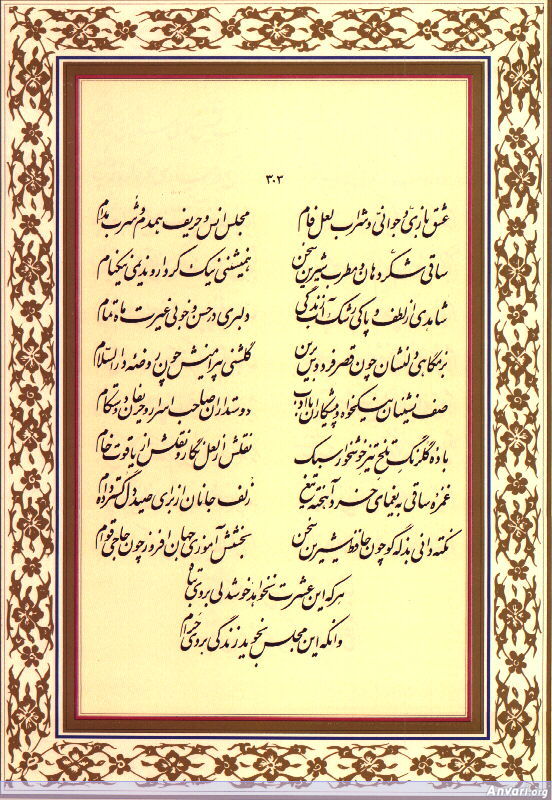 ۳۰۳
عشق بازی و جوانی و شراب لعل فام مجلس انس و حریف همدم و شرب مدام
ساقی شکر دهان و مطرب شیرین سخن همنشینی نیک کردار و ندیمی نیکنام
شاهدی از لطف و پاکی رشک آب زندگی دلبری در حسن و خوبی غیرت ماه تمام
بزمگاهی دلنشان چون قصر فردوس برین گلشنی پیرامنش چون روضه دارالسلام
صف نشینان نیکخواه و پیشکاران با ادب دوستداران صاحب اسرار و حریفان دوستکام
باده گلرنگ تلخ تیز خوشخوار سبک نقلش از لعل نگار و نقلش از یاقوت خام
غمزه ساقی به یغمای خرد آهخته تیغ زلف جانان از برای صید دل گسترده دام
نکته دانی بذله گو چون حافظ شیرین سخن بخشش آموزی جهان افروز چون حاجی قوام
هر که این عشرت نخواهد خوشدلی بر وی تباه
وانکه این مجلس نجوید زندگی بر وی حرام
Anvari.org